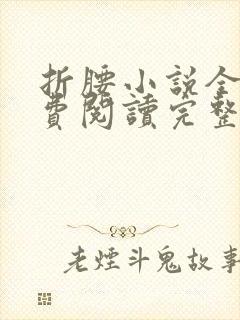 折腰小説全
費閱讀完整
老煙斗鬼故事